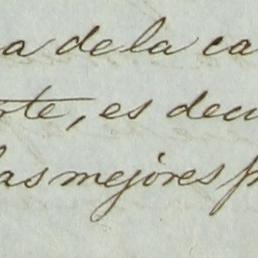 a de la ca
rte, es deci
las mejores fr